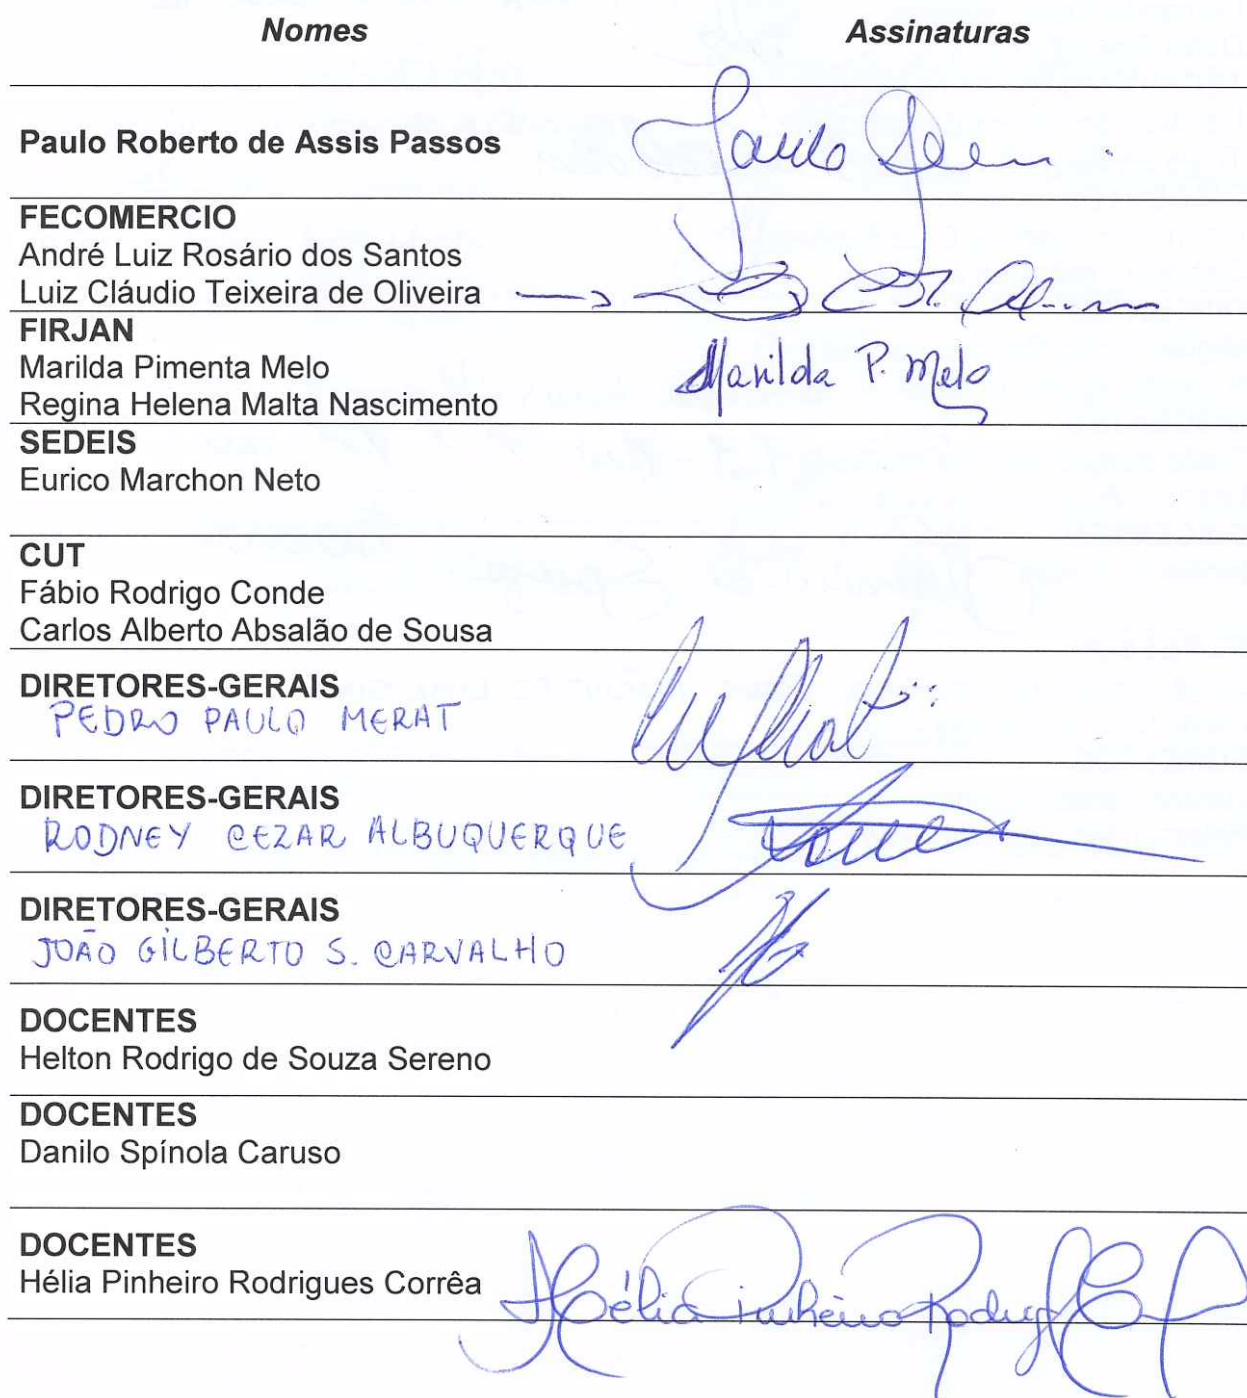 Nomes Assinaturas
Paulo Roberto de Assis Passos Paulo
FECOMERCIO
André Luiz Rosário dos Santos
Luiz Cláudio Teixeira de Oliveira
FIRJAN
Marilda Pimenta Melo Marilda P. Melo
Regina Helena Malta Nascimento
SEDEIS
Eurico Marchon Neto
CUT
Fábio Rodrigo Conde
Carlos Alberto Absalão de Sousa
DIRETORES-GERAIS
PEDRO PAULO MERAT
DIRETORES-GERAIS
RODNEY CEZAR ALBUQUERQUE
DIRETORES-GERAIS
JOÃO GILBERTO S. CARVALHO
DOCENTES
Helton Rodrigo de Souza Sereno
DOCENTES
Danilo Spínola Caruso
DOCENTES
Hélia Pinheiro Rodrigues Corrêa Hélia Pinheiro